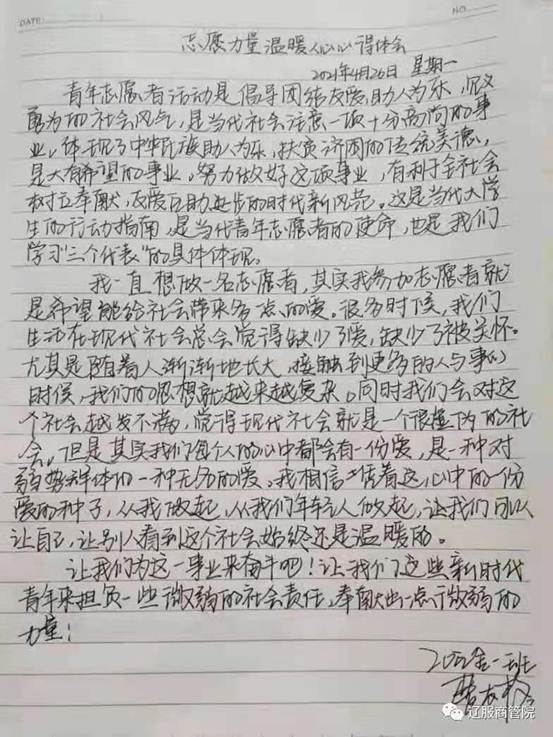 DATE:
NO.
志愿力量温暖人心心得体会
2021年4月26日 星期一
青年志愿者活动是倡导团结友爱,助人为乐,见义
勇为的社会风气,是当代社会注意一项十分高尚的事
业,体现了中华民族助人为乐,扶贫济困的传统美德,
是大有希望的事业,努力做好这项事业,有利于全社会
树立奉献,友爱互助进步的时代新风范。这是当代大学
生的行动指南,是当代青年志愿者的使命,也是我们
学习"三个代表"的具体体现。
我一直想做一名志愿者,其实我参加志愿者就
是希望能给社会带来多一点的爱。很多时候,我们
生活在现代社会总会觉得缺少了爱,缺少了被关怀。
尤其是随着人渐渐地长大,接触到更多的人与事的
时候,我们的思想就越来越复杂。同时我们会对这
个社会越发不满,觉得现代社会就是一个很虚伪的社
会。但是其实我们每个人的心中都会有一份爱,是一种对
弱势群体的一种无名的爱。我相信凭着这心中的一份
爱的种子,从我做起,从我们年轻人做起,让我们可以
让自己,让别人看到这个社会始终还是温暖的。
让我们为这一事业来奋斗吧!让我们这些新时代
青年来担负一些微弱的社会责任,奉献出一点微弱的
力量!
一班
辽服商管院